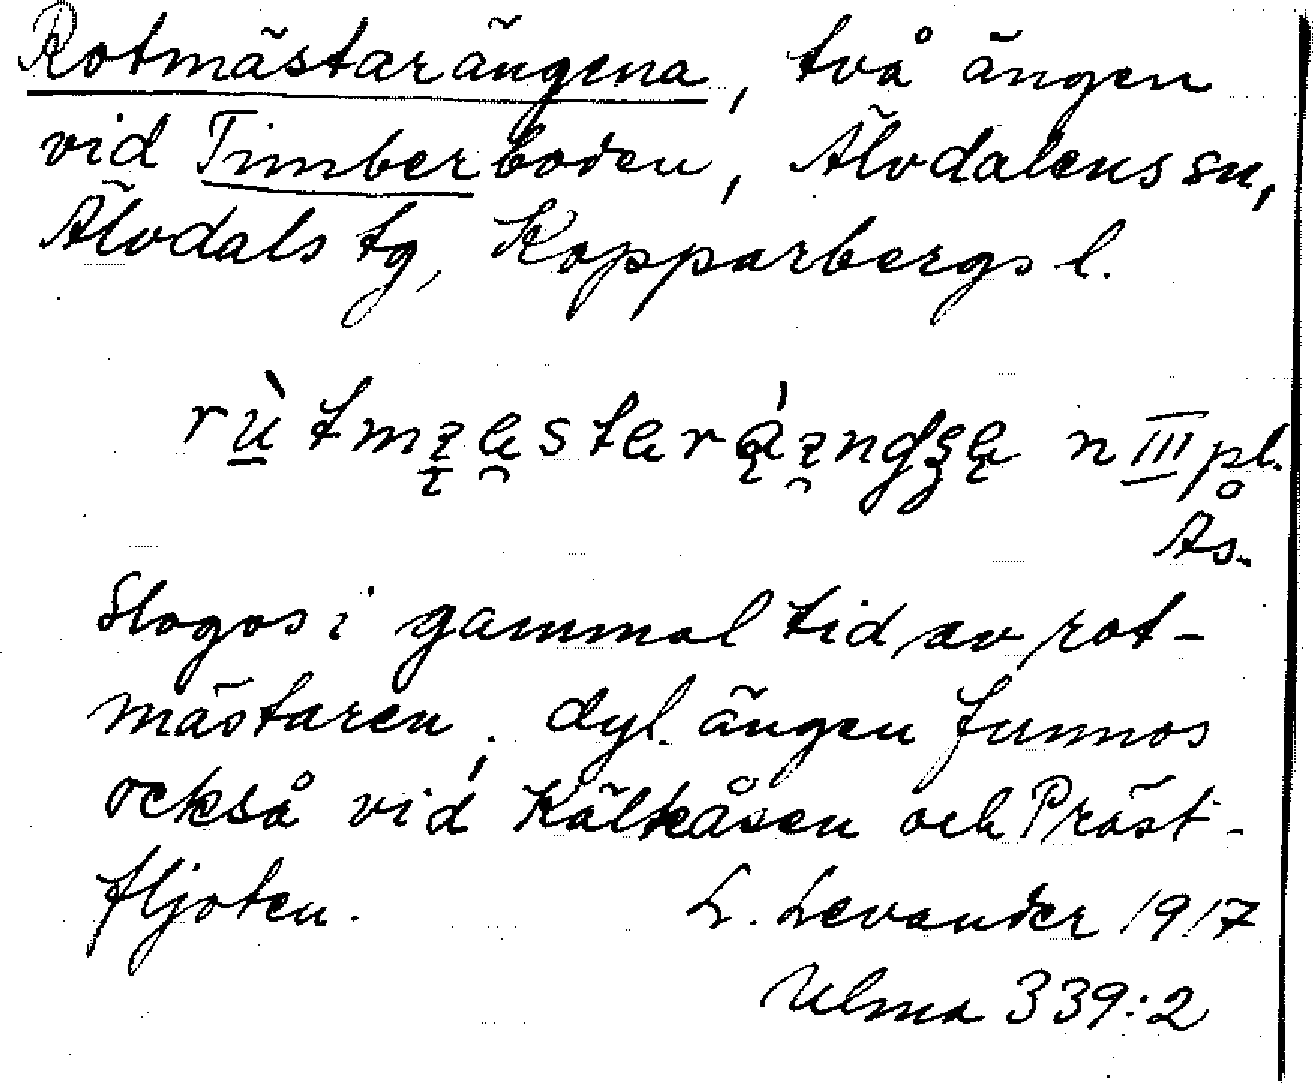 Rotmästarängena, två ängen
vid Timberboden, Älvdalens sn,
Älvdals tg, Kopparbergs l.
n III pl.
Ås.
Slogos i gammal tid av rot-
mästaren; dyl. ängen funnos
också vid Kälkåsen och Präst-
fljoten.
L. Levander 1917
Ulma 339:2